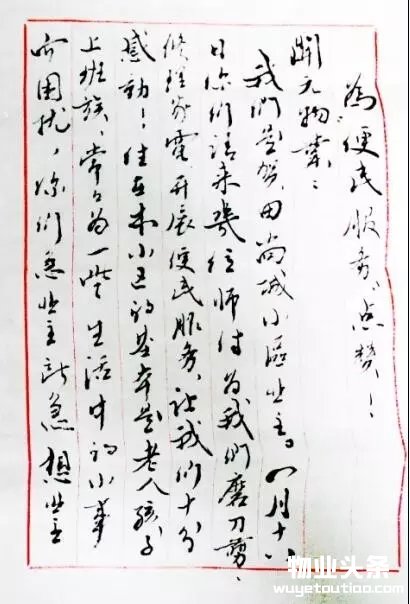 為“便民服务”点赞！
開元物業：
我们是贺田尚城小區业主。八月十八
日你们請来幾位师付为我们磨刀剪、
修理家電开展便民服务，让我们十分
感動！住在本小区的基本是老人孩子
上班族，常常为一些生活中的小事
而困扰，你们急业主所急想业主
物业头条
wuyetoutiao.com